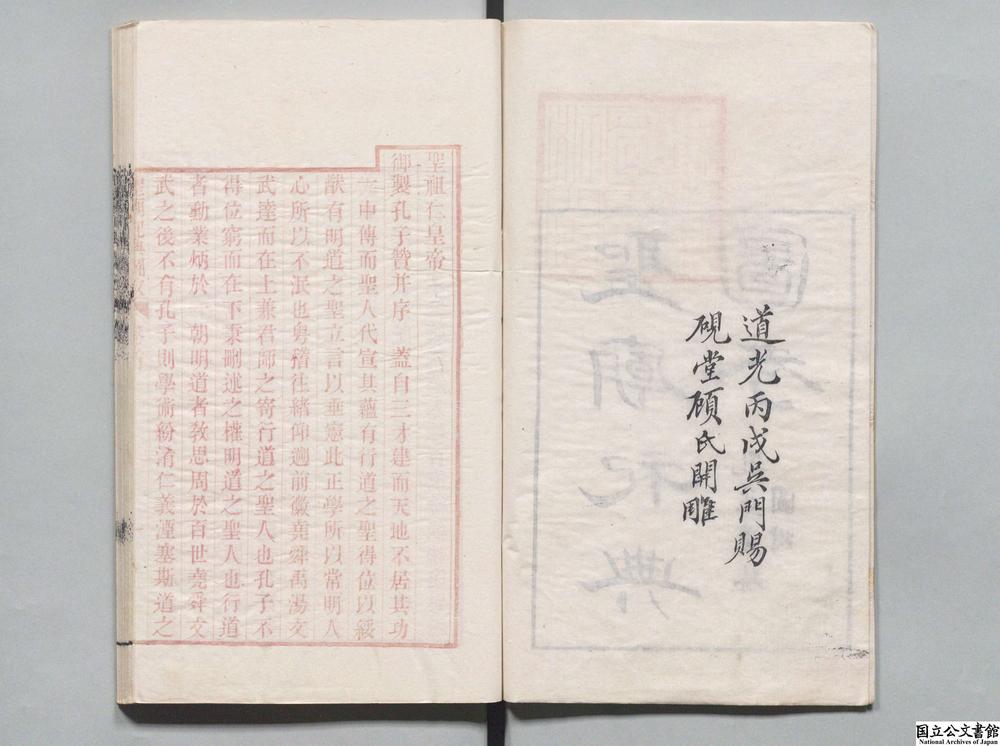 道光丙戌吳門賜
硯堂顧氏開雕
聖祖仁皇帝
御製孔子贊并序　蓋自三才建而天地不居其功
一中傳而聖人代宣其蘊有行道之聖得位以綏
猷有明道之聖立言以垂憲此正學所以常明人
心所以不泯也粵稽往緒仰遡前徽堯舜禹湯文
武達而在上兼君師之寄行道之聖人也孔子不
得位窮而在下秉刪述之權明道之聖人也行道
者勳業炳於一朝明道者教思周於百世堯舜文
武之後不有孔子則學術紛淆仁義湮塞斯道之
国立公文書館
National Archives of Japan